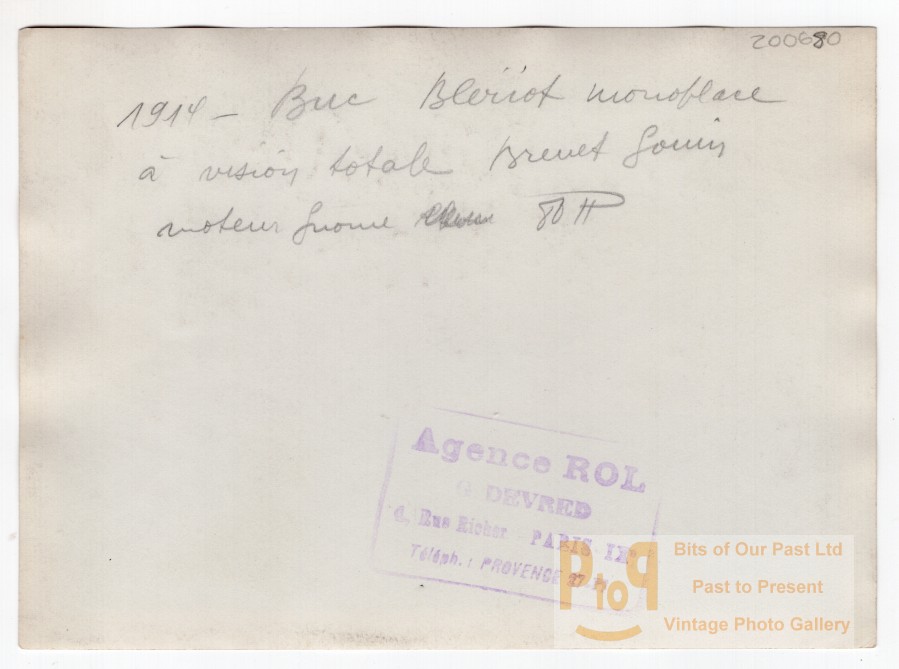 200680
1914 - Buc Blériot monoplace
à vision totale Brevet Gouin
moteur gnome 80 H
Agence ROL
G. DEVRED
4, Rue Richer - PARIS IXe
Téléph. : PROVENCE
PtoP
Bits of Our Past Ltd
Past to Present
Vintage Photo Gallery